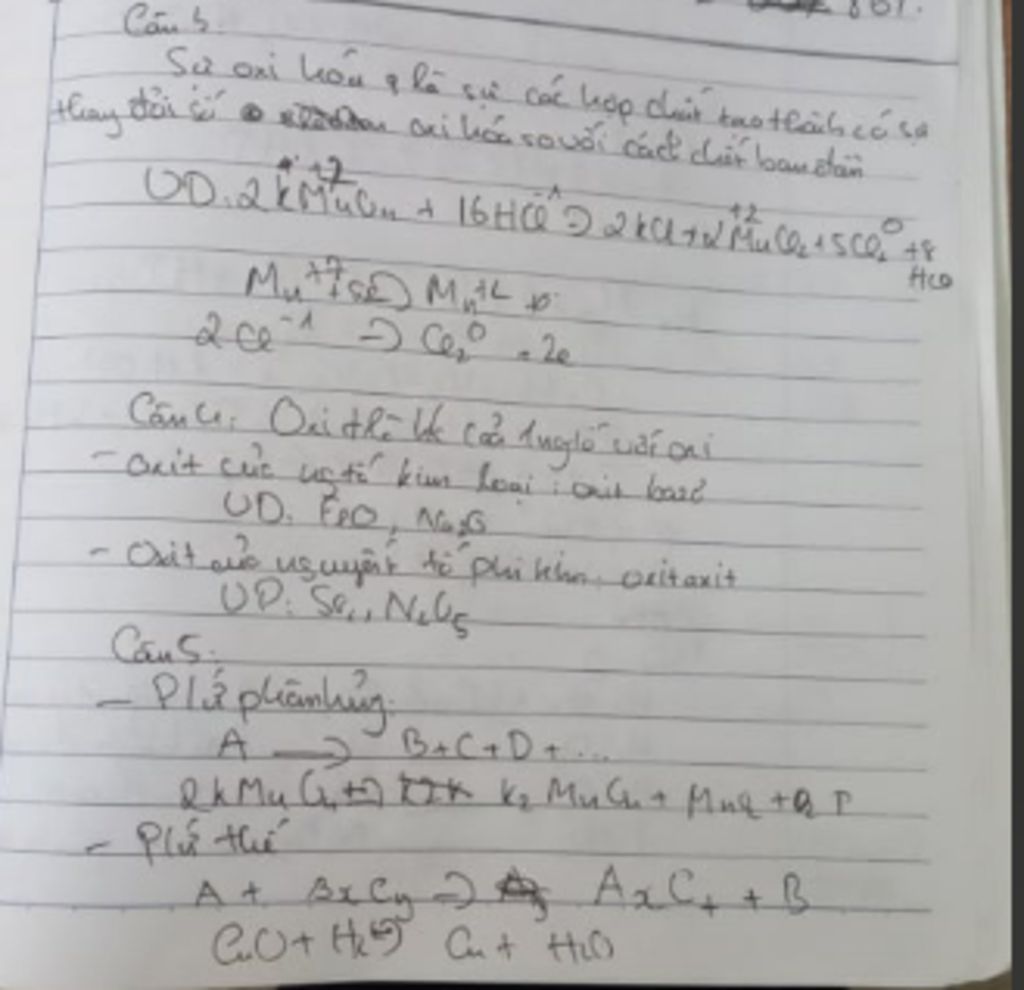 Câu 3.
Sự oxi hóa là sự các hợp chất tạo thành có sự
thay đổi số oxi hóa so với các chất ban đầu
VD. 2KMnO4 + 16HCl => 2KCl + 2MnCl2 + 5Cl2 + 8
+7 -1 +2 0
H2O
Mn+7 +5e => Mn+2
2Cl-1 => Cl2 0 + 2e
Câu 4. Oxi thì là của 1 ng tố với oxi
- Oxit của ng tố kim loại : oxit bazơ
VD. FeO, Na2O
- Oxit của nguyên tố phi kim. oxit axit
VD: SO2, N2O5
Câu 5.
- Pứ phân hủy.
A → B + C + D + ...
2KMnO4 => K2MnO4 + MnO2 + O2 ↑
- Pứ thế
A + BxCy => AxCy + B
CuO + H2 => Cu + H2O